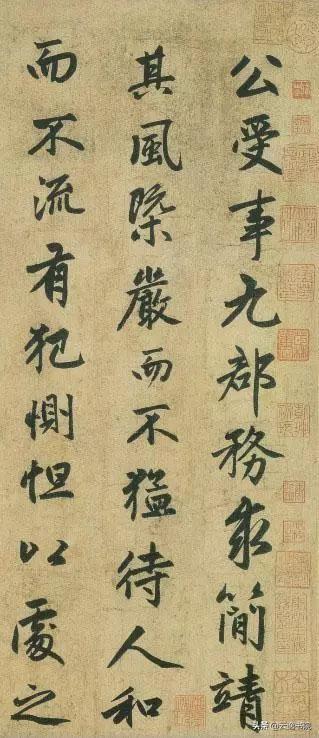 公受事九郡務求簡靖
其風槩嚴而不猛待人和
而不流有犯惻怛以處之
头条@云逸书院